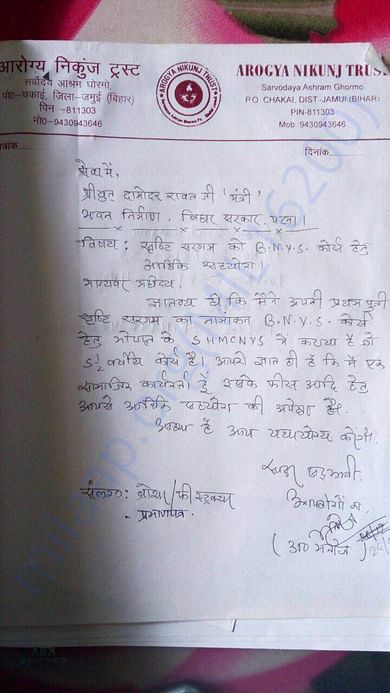 आरोग्य निकुंज ट्रस्ट
सर्वोदय आश्रम घोरमो,
पो०-चकाई, जिला-जमुई (बिहार)
पिन -811303
मो०-9430943646
AROGYA NIKUNJ TRUST
AROGYA NIKUNJ TRUST
Sarvodaya Ashram Ghormo
P.O. CHAKAI, DIST-JAMUI (BIHAR)
PIN-811303
Mob.:9430943646
पत्रांक
दिनांक
सेवा में,
श्रीयुत दामोदर रावत जी 'मंत्री'
भवन निर्माण, बिहार सरकार, पटना।
विषय: सृष्टि सरगम को B.N.Y.S. कोर्स हेतु
आर्थिक सहयोग।
मान्यवर महोदय,
ज्ञातव्य हो कि मैंने अपनी प्रथम पुत्री
सृष्टि सरगम का नामांकन B.N.Y.S. कोर्स
हेतु भोपाल के SHMCNYS में कराया है जो
5½ वर्षीय कोर्स है। आपको ज्ञात ही है कि मैं एक
सामाजिक कार्यकर्ता हूँ इसके फीस आदि हेतु
आपसे आर्थिक सहयोग की अपेक्षा है।
आशा है आप यथायोग्य करेंगे।
संलग्न:
प्रमाणपत्र
(डा० मनोज)